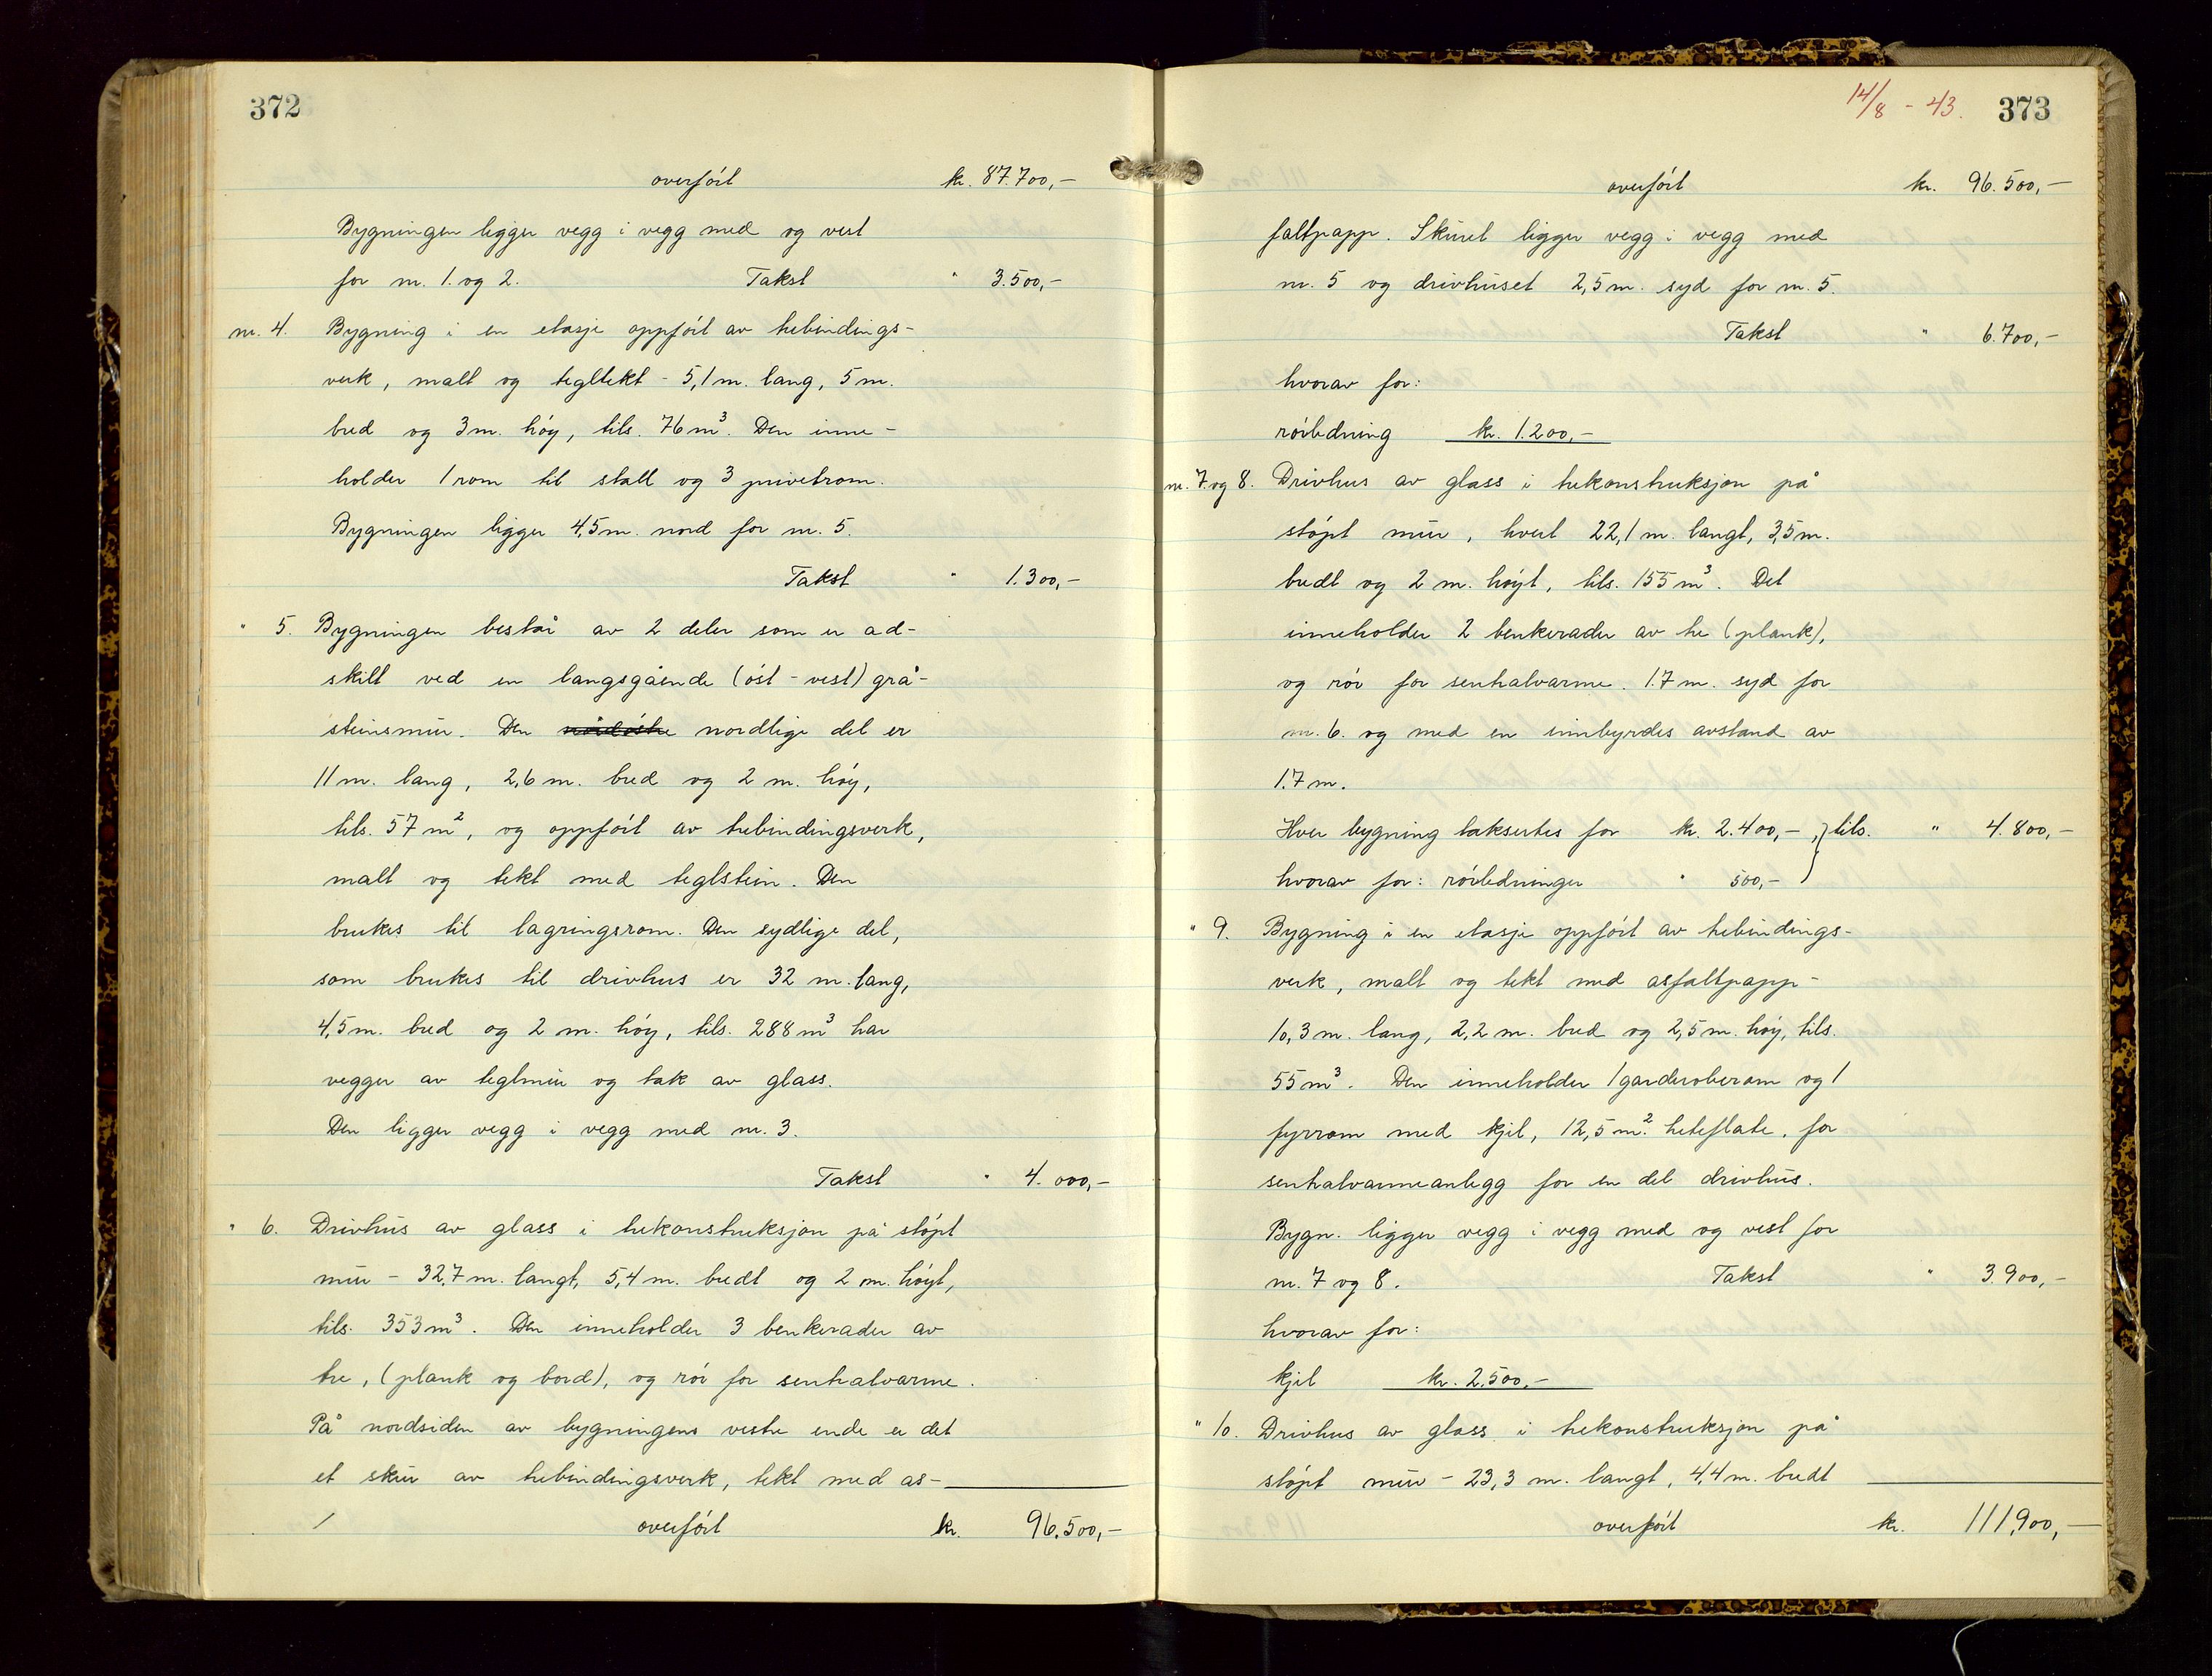 372
overført kr. 87.700,-
Bygningen ligger vegg i vegg med og vest
for nr. 1. og 2. Takst " 3.500,-
nr. 4. Bygning i en etasje oppført av trebindings-
verk, malt og tegltekt - 5,1 m. lang, 5 m.
bred og 3 m. høy, tils. 76 m³. Den inne-
holder 1 rom til stall og 3 privetrom.
Bygningen ligger 4,5 m. nord for nr. 5.
Takst " 1.300,-
" 5. Bygningen består av 2 deler som er ad-
skilt ved en langsgående (øst - vest) grå-
steinsmur. Den nordlige del er
11 m. lang, 2,6 m. bred og 2 m. høy,
tils. 57 m², og oppført av trebindingsverk,
malt og tekt med teglstein. Den
brukes til lagringsrom. Den sydlige del,
som brukes til drivhus er 32 m. lang,
4,5 m. bred og 2 m. høy, tils. 288 m³ har
vegger av teglmur og tak av glass.
Den ligger vegg i vegg med nr. 3.
Takst " 4.000,-
" 6. Drivhus av glass i trekonstruksjon på støpt
mur - 32,7 m. langt, 5,4 m. bredt og 2 m. høyt,
tils. 353 m³. Den inneholder 3 benkerader av
tre, (plank og bord), og rør for sentralvarme.
På nordsiden av bygningens vestre ende er det
et skur av trebindingsverk, tekt med as-
overført kr. 96.500,-
14/8 - 43. 373
overført kr. 96.500,-
faltpapp. Skuret ligger vegg i vegg med
nr. 5 og drivhuset 2,5 m. syd for nr. 5.
Takst " 6.700,-
hvorav for:
rørledning kr. 1.200,-
nr. 7 og 8. Drivhus av glass i trekonstruksjon på
støpt mur, hvert 22,1 m. langt, 3,5 m.
bredt og 2 m. høyt, tils. 155 m³. Det
inneholder 2 benkerader av tre (plank),
og rør for sentralvarme. 1.7 m. syd for
nr. 6. og med en innbyrdes avstand av
1.7 m.
Hver bygning takseres for kr. 2.400,-, } tils. " 4.800,-
hvorav for: rørledninger " 500,-
" 9. Bygning i en etasje oppført av trebindings-
verk, malt og tekt med asfaltpapp -
10,3 m. lang, 2,2 m. bred og 2,5 m. høy, tils.
55 m³. Den inneholder 1 garderoberom og 1
fyrrom med kjel, 12,5 m.² heteflate, for
sentralvarmeanlegg for en del drivhus.
Bygn. ligger vegg i vegg med og vest for
nr. 7 og 8. Takst " 3.900,-
hvorav for:
kjel kr. 2.500,-
" 10. Drivhus av glass i trekonstruksjon på
støpt mur - 23,3 m. langt, 4,4 m. bredt
overført kr. 111.900,-